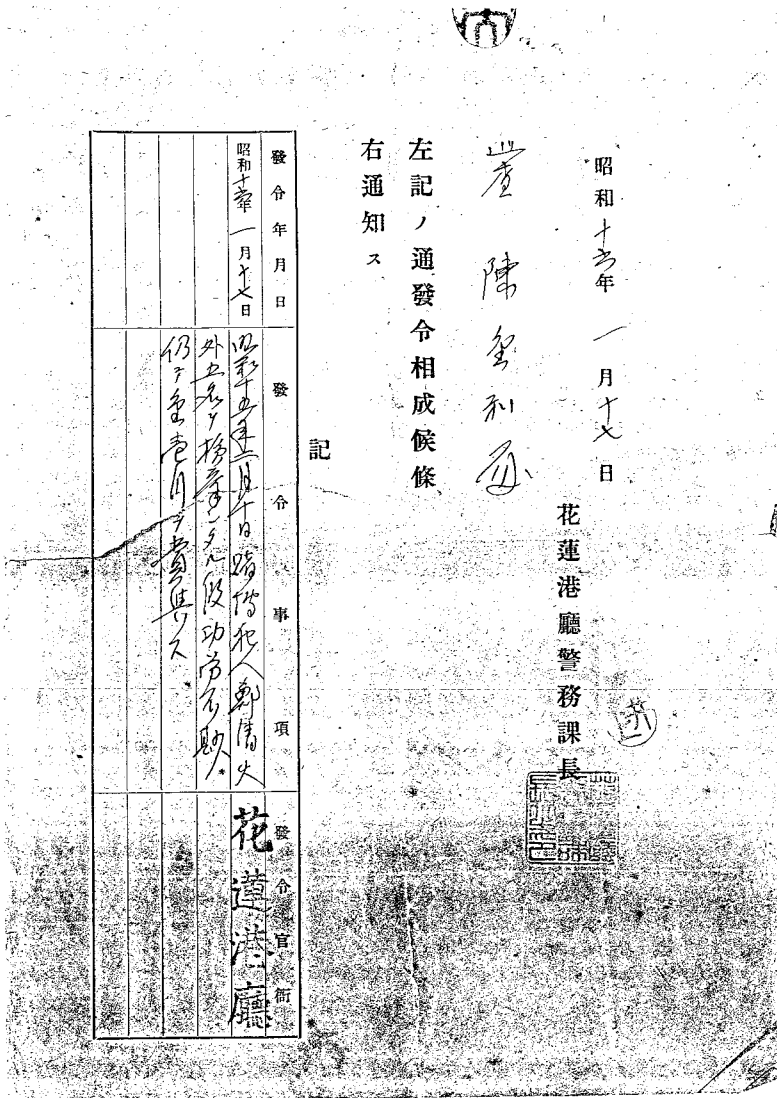 昭和十六年 一月十七日
花蓮港廳警務課長
巡査 陳金利 殿
左記ノ通發令相成候條
右通知ス
記
發令年月日 發令事項 發令官衙
昭和十六年 一月十七日 昭和十五年十二月十日賭博犯人鄭清火 花蓮港廳
外五名ヲ檢擧シタル段功勞不尠
仍テ金壱円ヲ賞與ス